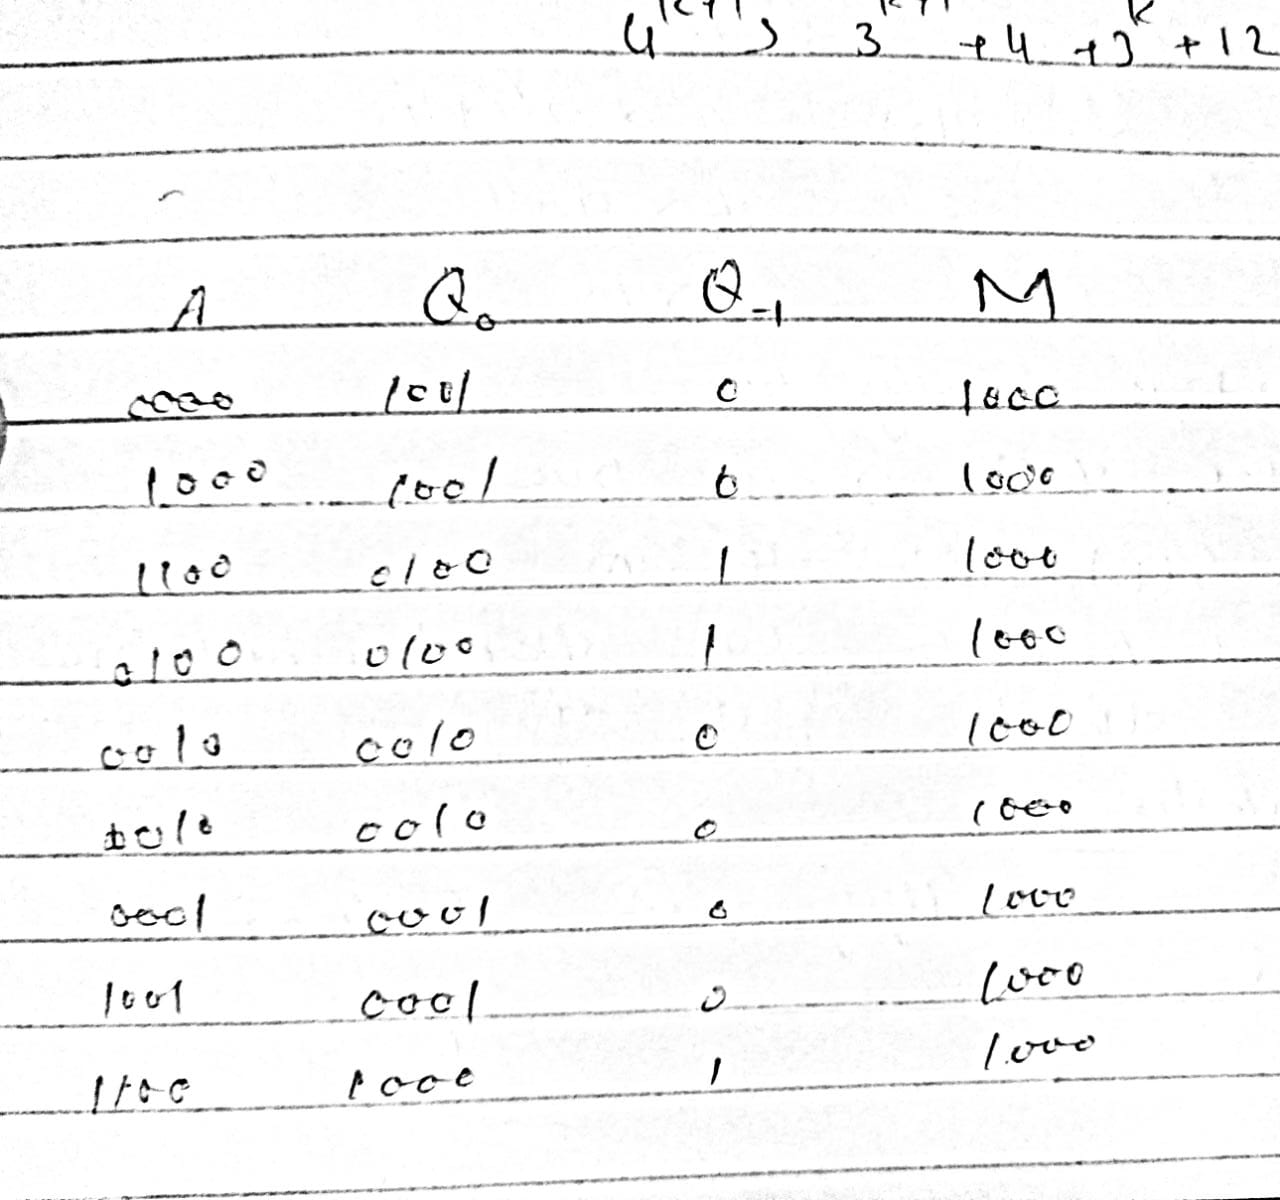 4^{k+1}, 3^{k+1} +4 +3^k +12
A Q₀ Q₋₁ M
0000 1001 0 1000
1000 1001 0 1000
1100 0100 1 1000
0100 0100 1 1000
0010 0010 0 1000
0010 0 1000
0001 0001 0 1000
1001 0001 0 1000
1100 1000 1 1000